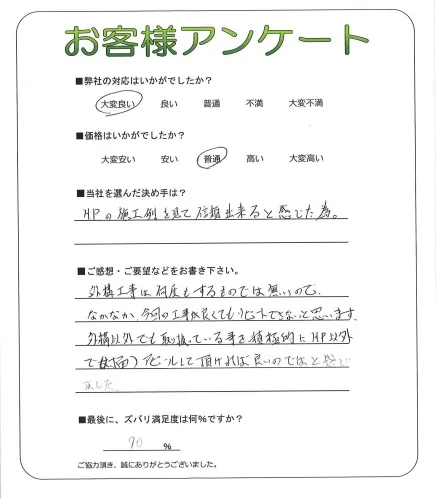 お客様アンケート
■弊社の対応はいかがでしたか?
大変良い 良い 普通 不満 大変不満
■価格はいかがでしたか?
大変安い 安い 普通 高い 大変高い
■当社を選んだ決め手は?
HPの施工例を見て信頼出来ると感じた為。
■ご感想・ご要望などをお書き下さい。
外構工事は何度もするものでは無いので
なかなか、今回の工事が良くてもリピートできないと思います。
外構以外でも取扱っている事を積極的にHP以外
で アピールして頂ければ良いのではと感じ
ました
■最後に、ズバリ満足度は何%ですか?
90 %
ご協力頂き、誠にありがとうございました。